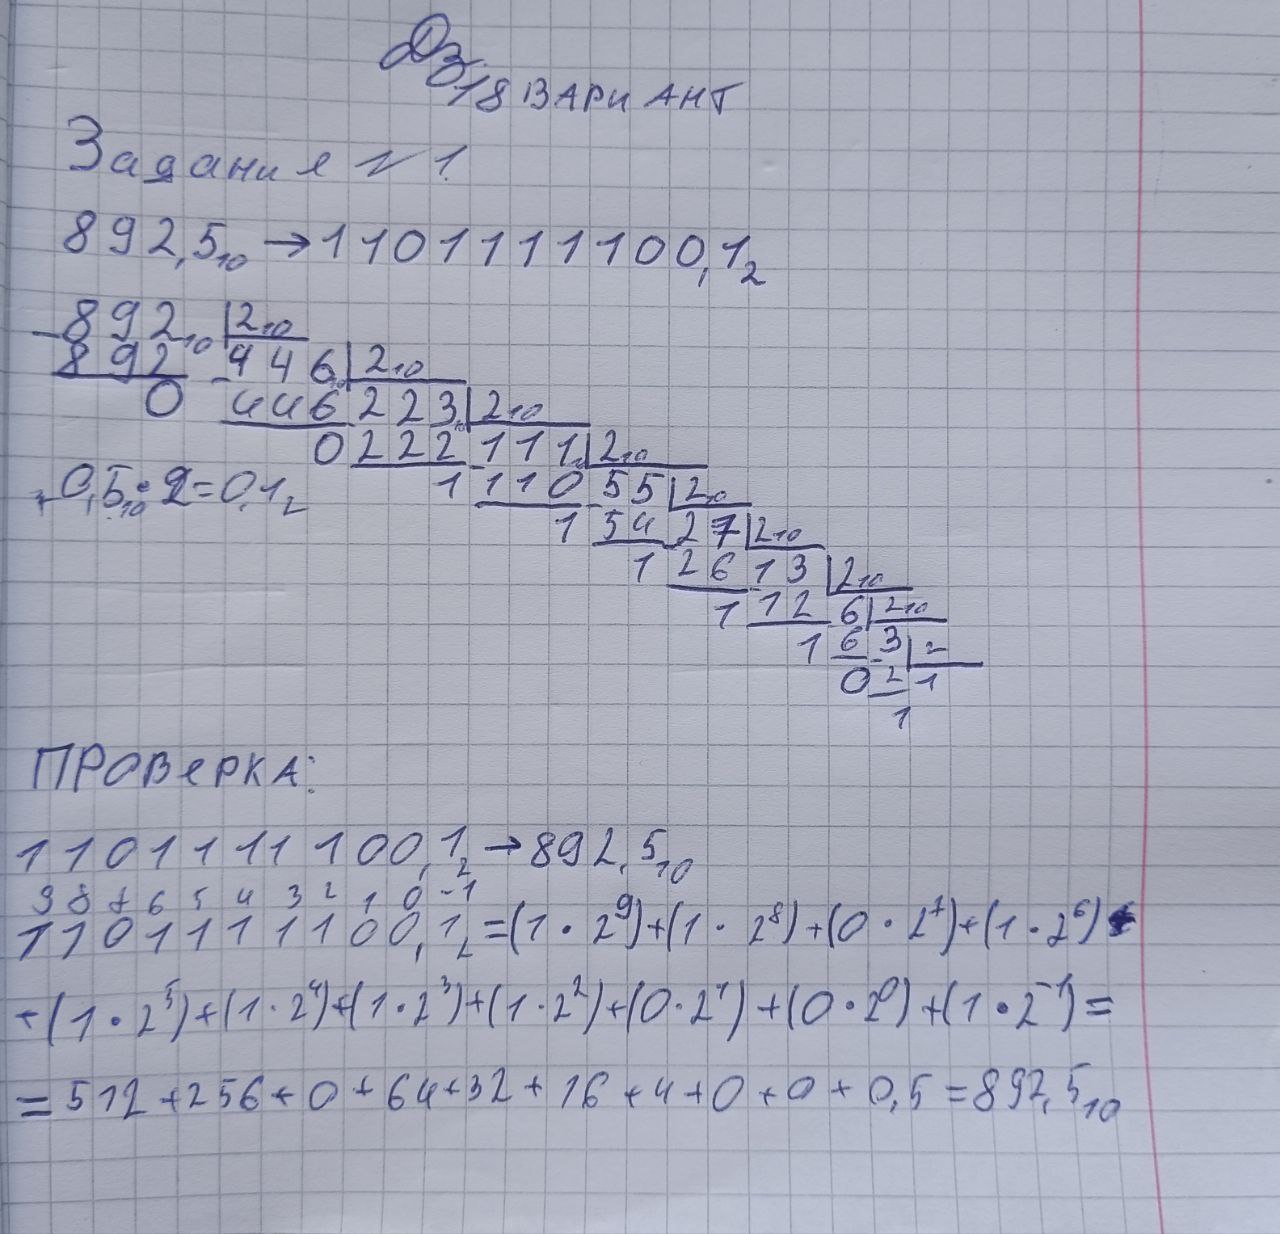 ДЗ
18 ВАРИАНТ
Задания №1.
892,5₁₀ → 1101111100,1₂
-892₁₀ | 2₁₀
892 -446₁₀ | 2₁₀
0 446 223₁₀ | 2₁₀
0 222 -111₁₀ | 2₁₀
0,5₁₀ · 2 = 0,1₂ 1 110 -55 | 2₁₀
1 54 -27 | 2₁₀
1 26 -13 | 2₁₀
1 12 -6 | 2₁₀
1 6 -3 | 2
0 2 1
1
ПРОВЕРКА:
1101111100,1₂ → 892,5₁₀
9 8 7 6 5 4 3 2 1 0 -1
1101111100,1₂ = (1 · 2⁹) + (1 · 2⁸) + (0 · 2⁷) + (1 · 2⁶) +
+ (1 · 2⁵) + (1 · 2⁴) + (1 · 2³) + (1 · 2²) + (0 · 2¹) + (0 · 2⁰) + (1 · 2⁻¹) =
= 512 + 256 + 0 + 64 + 32 + 16 + 4 + 0 + 0 + 0,5 = 892,5₁₀